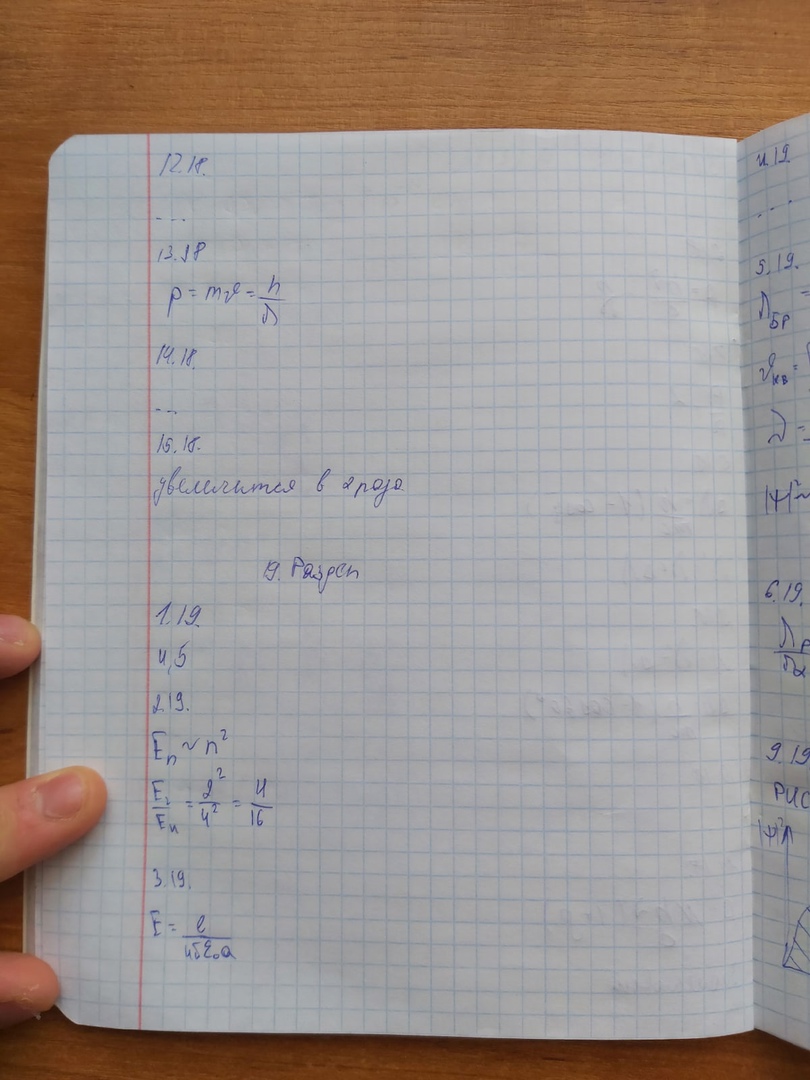 12.18.
...
13.18
p = mv = h/λ
14.18.
...
15.18.
увеличится в 2 раза
19. Раздел
1.19.
4,5
2.19.
Eₙ ~ n²
E₂/E₄ = 2²/4² = 4/16
3.19.
E = e/4πε₀a
4.19.
...
5.19.
λ_БР =
v_кв =
|Ψ|² ~
6.19.
9.19
РИС
|Ψ|²